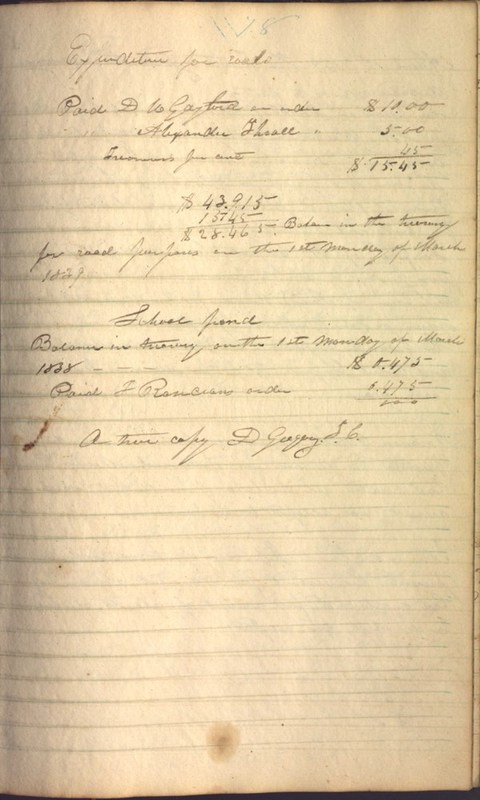 Expenditure for roads
Paid D W Gaylord on order $10.00
" " Alexander Thrall " 5.00
Treasurers per cent 45
$15.45
$43.915
15.45
$28.465 Balance in the treasury
for road purposes on the 1st Monday of March
1839
School fund
Balance in treasury on the 1st Monday of March
1838 - - - $0.475
Paid order 0.475
000
A true copy D Gregory T. C.